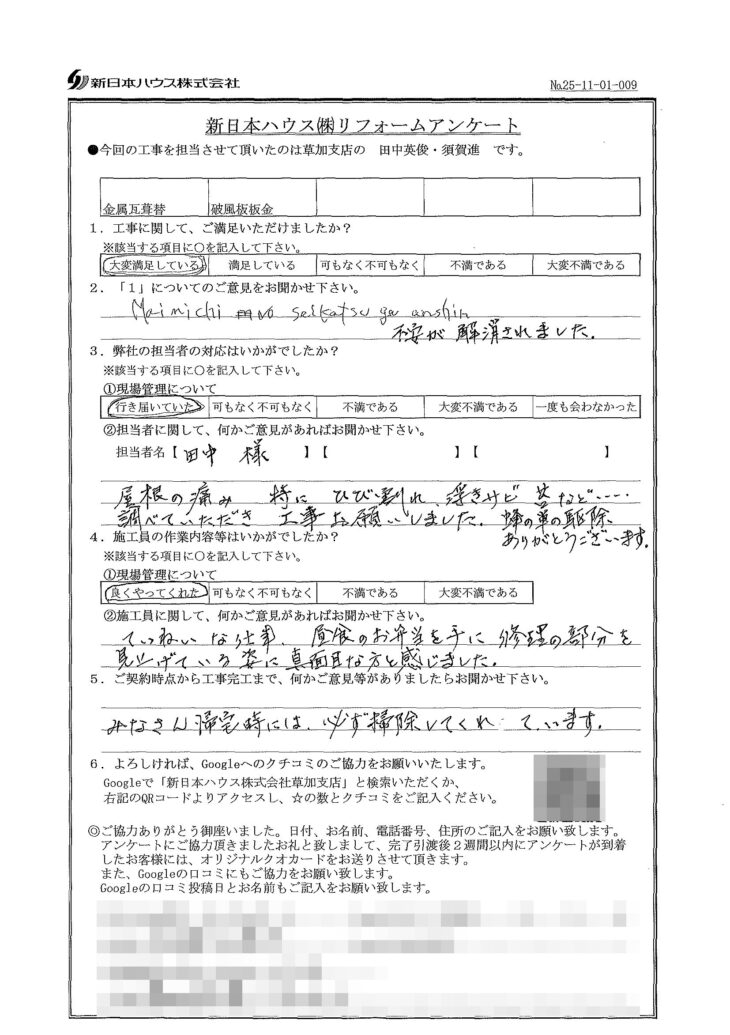 新日本ハウス株式会社
№25-11-01-009
新日本ハウス㈱リフォームアンケート
●今回の工事を担当させて頂いたのは草加支店の 田中英俊・須賀進 です。
金属瓦葺替 破風板板金
1．工事に関して、ご満足いただけましたか？
※該当する項目に○を記入して下さい。
大変満足している 満足している 可もなく不可もなく 不満である 大変不満である
2．「1」についてのご意見をお聞かせ下さい。
Mainichi no seikatsu ga anshin
不安が解消されました．
3．弊社の担当者の対応はいかがでしたか？
※該当する項目に○を記入して下さい。
①現場管理について
行き届いていた 可もなく不可もなく 不満である 大変不満である 一度も会わなかった
②担当者に関して、何かご意見があればお聞かせ下さい。
担当者名【田中 様 】【 】【 】
屋根の痛み 特に ひび割れ、浮きサビ など‥‥
調べていただき 工事お願いしました．蜂の巣の駆除
ありがとうございます．
4．施工員の作業内容等はいかがでしたか？
※該当する項目に○を記入して下さい。
①現場管理について
良くやってくれた 可もなく不可もなく 不満である 大変不満である
②施工員に関して、何かご意見があればお聞かせ下さい。
ていねいな仕事、昼食のお弁当を手に 修理の部分を
見上げている姿に真面目な方と感じました．
5．ご契約時点から工事完工まで、何かご意見等がありましたらお聞かせ下さい。
みなさん帰宅時には、必ず掃除してくれています．
6．よろしければ、Googleへのクチコミのご協力をお願いいたします。
Googleで「新日本ハウス株式会社草加支店」と検索いただくか、
右記のQRコードよりアクセスし、☆の数とクチコミをご記入ください。
◎ご協力ありがとう御座いました。日付、お名前、電話番号、住所のご記入をお願い致します。
アンケートにご協力頂きましたお礼と致しまして、完了引渡後２週間以内にアンケートが到着
したお客様には、オリジナルクオカードをお送りさせて頂きます。
また、Googleの口コミにもご協力をお願い致します。
Googleの口コミ投稿日とお名前もご記入をお願い致します。